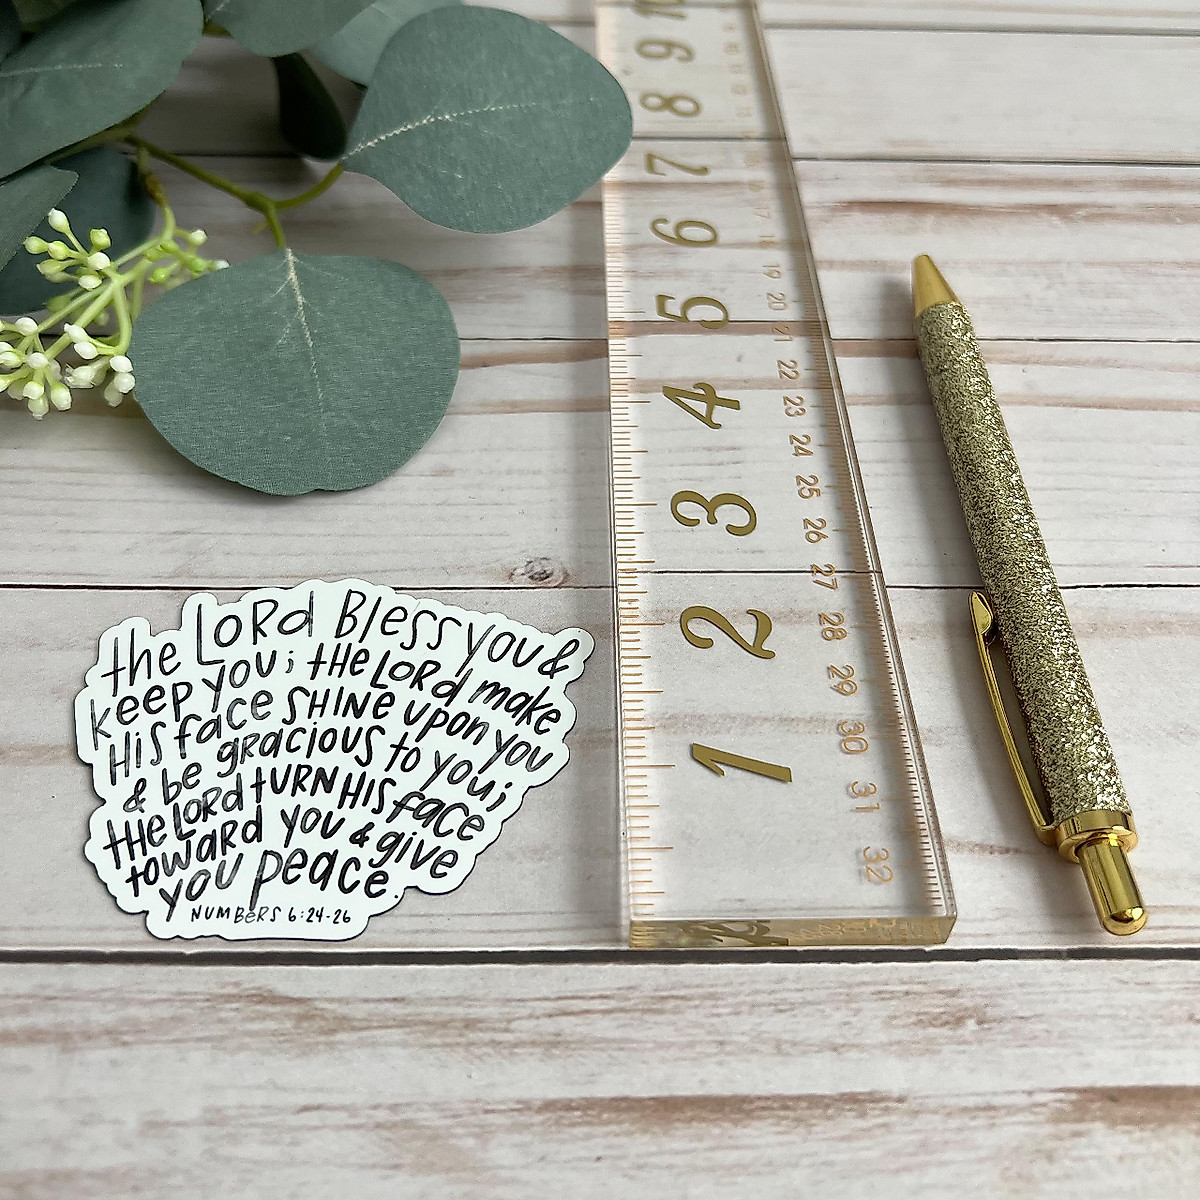 the LORD Bless you &
keep you; tHe LORD make
HiS face SHINE upon you
& be gracious to you;
tHe LORD tURN HIS face
toward you & give
you peace.
NUMBeRS 6:24-26
10
9
8
7
6
5
4
3
2
1
19
20
21
22
23
24
25
26
27
28
29
30
31
32